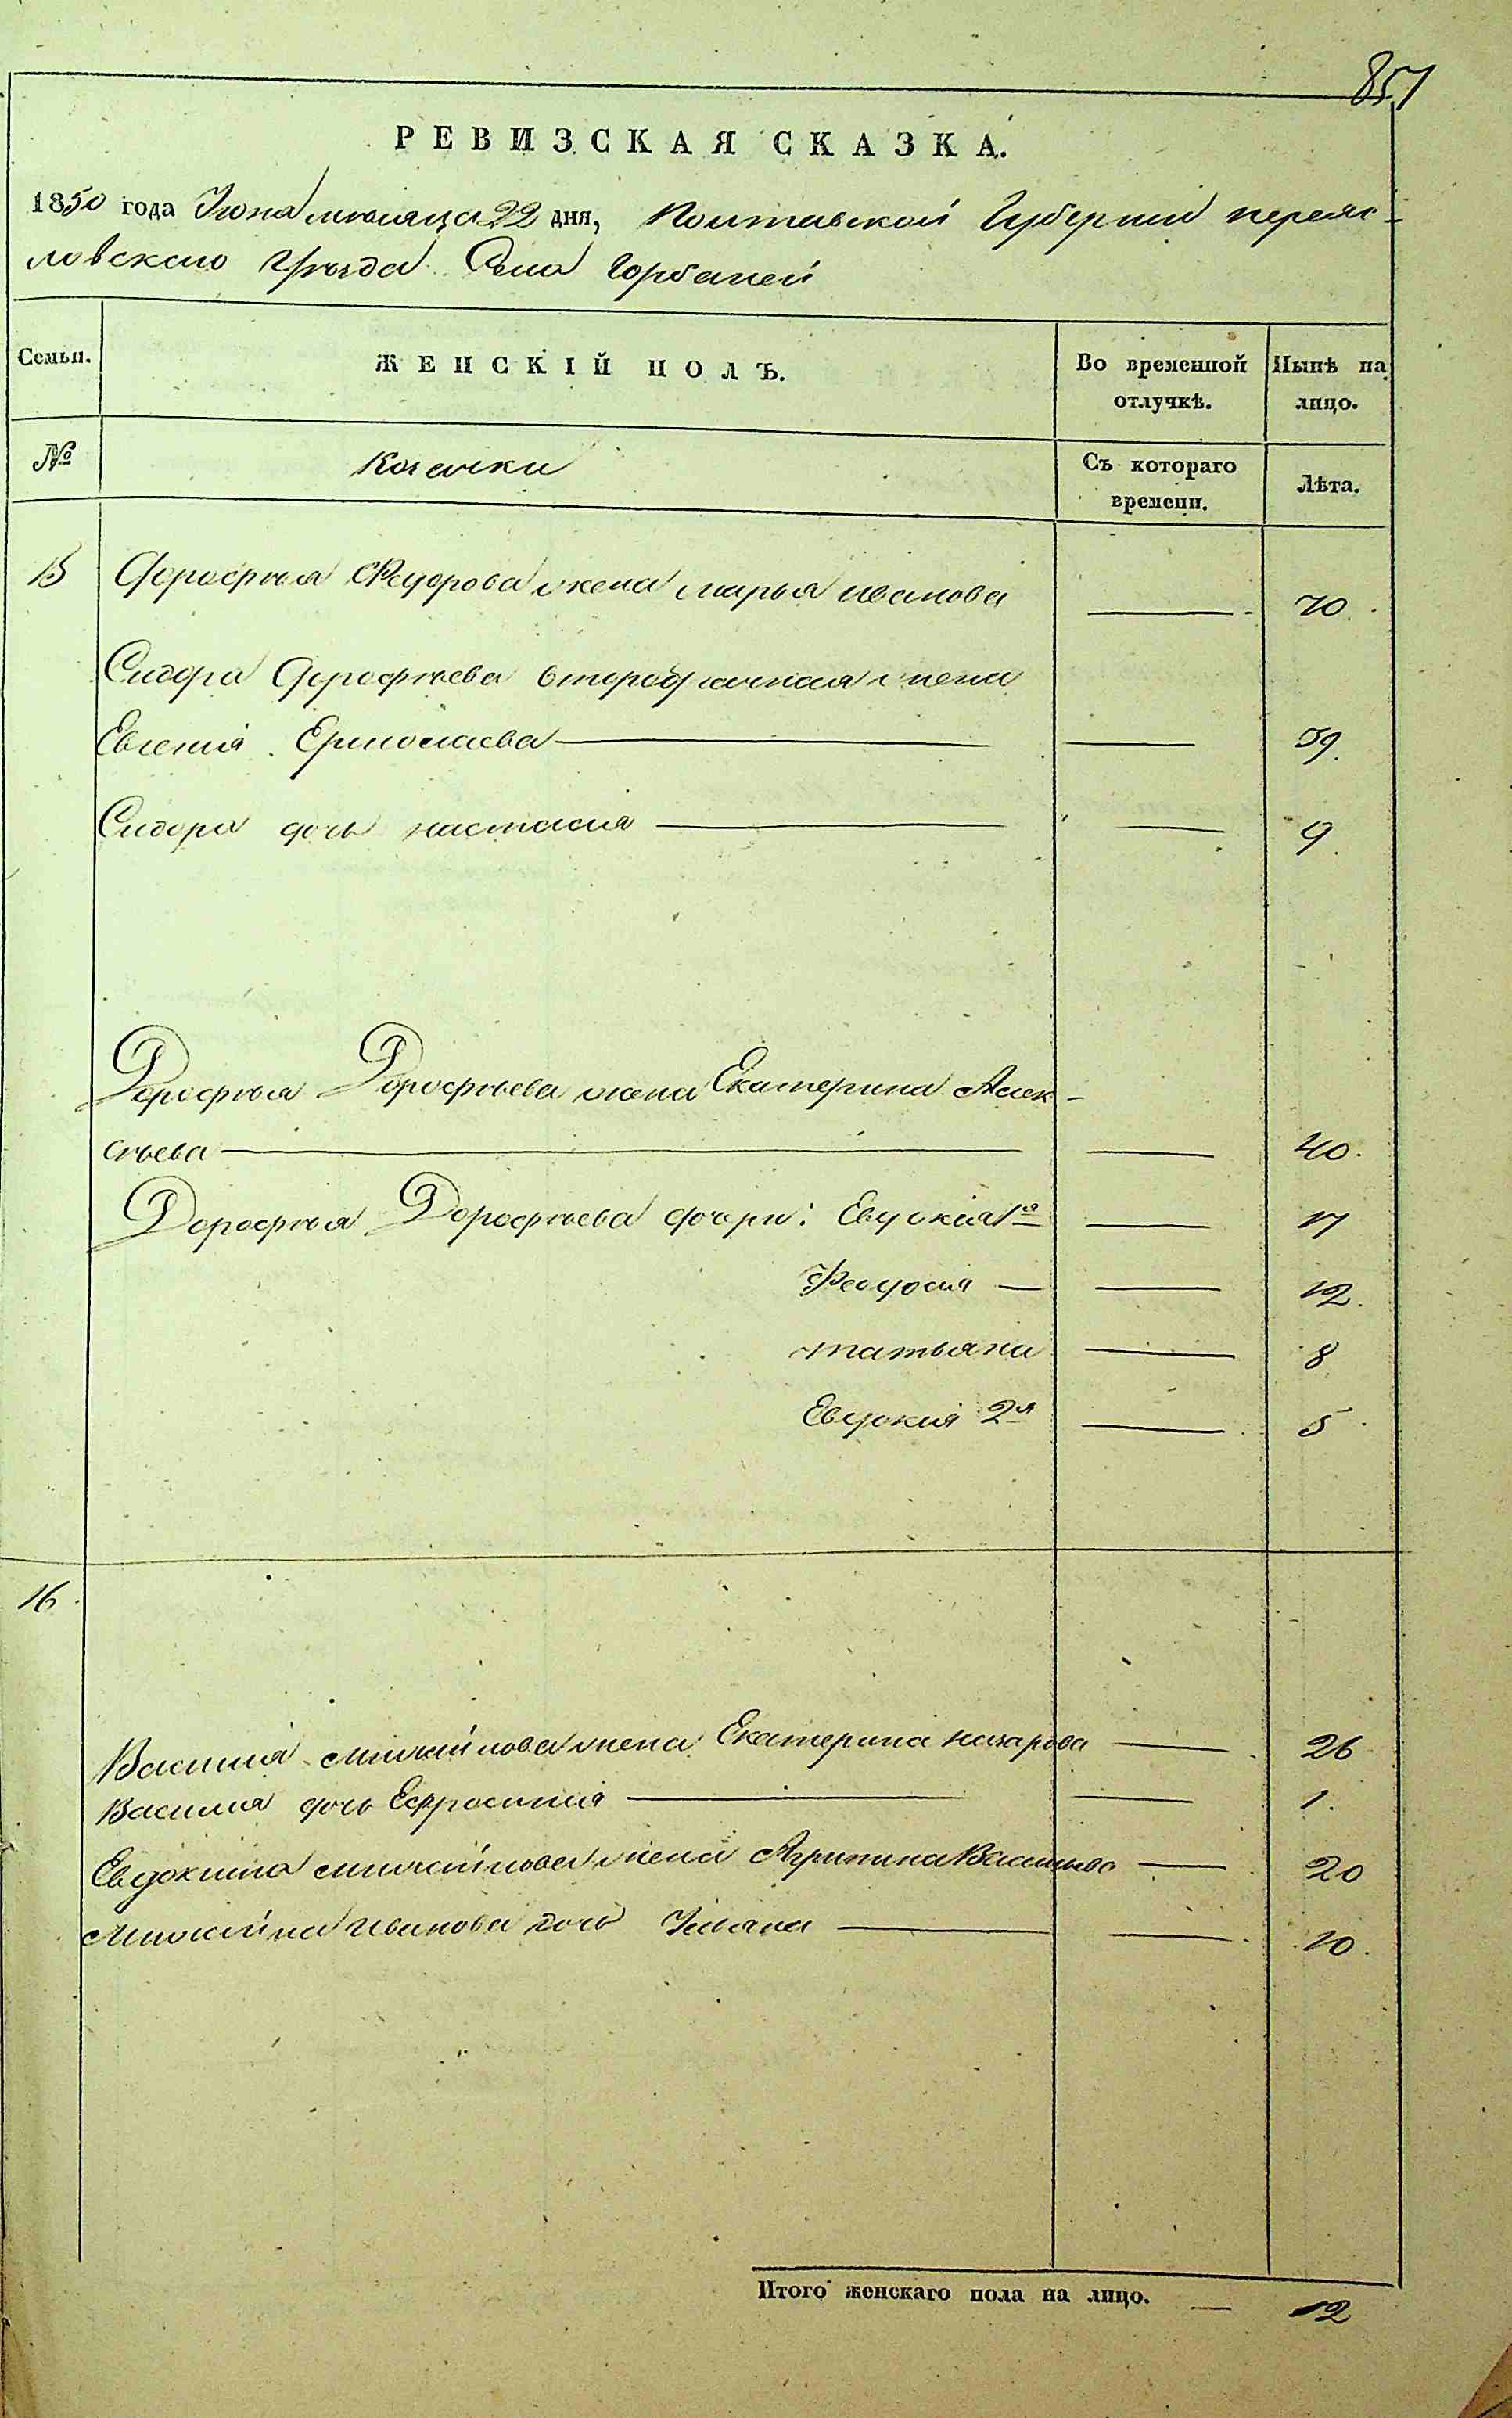 857
РЕВИЗСКАЯ СКАЗКА.
1850 года Июня месяца 22 дня, Полтавской Губернии переяс-
ловского Уѣзда Села Горбаней
Семьи.
ЖЕНСКІЙ ПОЛЪ.
Во временной отлучкѣ.
Нынѣ на лицо.
№
Козачки
Съ котораго времени.
Лѣта.
15 Дорофѣя Федорова жена марья иванова — 70.
Сидора Дорофѣева второбрачная жена
Евгенія Ермолаева — — 39.
Сидора дочь настасія — — 9.
Дорофѣя Дорофѣева жена Екатерина Алек-
сѣева — — 40.
Дорофѣя Дорофѣева дочери: Евдокія 1я — 17
Феодосія — — 12.
татьяна — 8
Евдокія 2я — 5
16.
Василія михайлова жена Екатерина назарова — 26
Василія дочь Ефросинія — — 1.
Евдокима михайлова жена Агрипина Васильева — 20
михайла иванова дочь Ульяна — — 10.
Итого женскаго пола на лицо. — 12